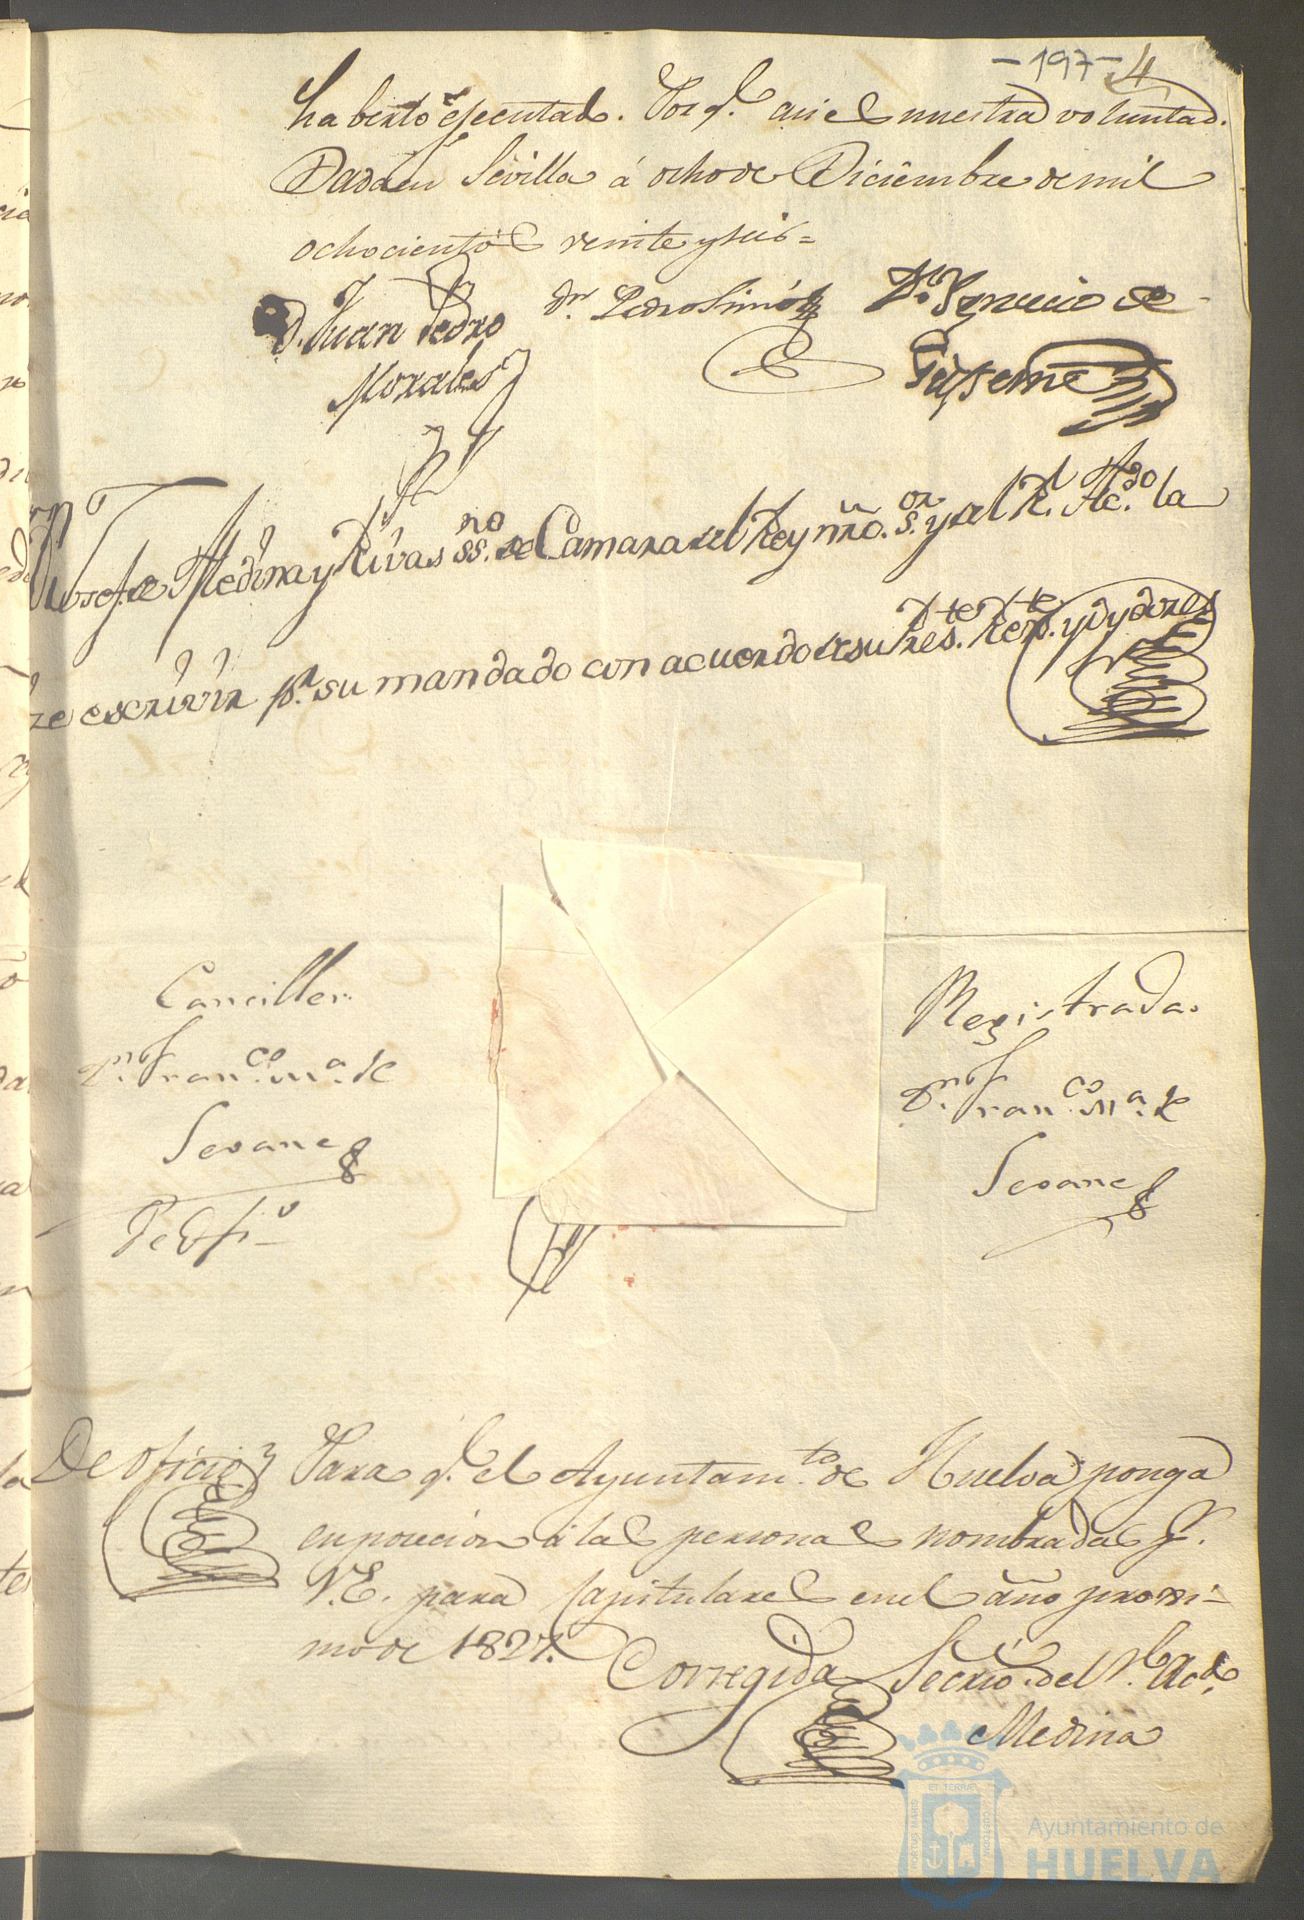 -197- 4
haberlo ejecutado. Por q.e asi es nuestra voluntad.
Dada en Sevilla á ocho de Diciembre de mil
ochocientos veinte y seis=
D. Juan Pedro
Morales
Dn. Pedro Simó
Dn. Ygnacio de
Dn. Josef de Medina y Rivas ss.no de Camara del Rey nro. s.or y del Rl. Ac.do la
ze escrivir pr. su mandado con acuerdo de su Res.te Rex.te y Oydores
Canciller
Dn. Franco. Ma. de
Seoane
De Ofi.o
Registrada
Dn. Franco. Ma. de
Seoane
De oficio
Para q.e el Ayuntam.to de Huelva ponga
en posecion á las personas nombradas pr.
V.E. para Capitulares en el año proxi-
mo de 1827.
Corregida
Secrio. del Rl. Acdo.
Medina
PORTUS MARIS
ET TERRAE
CUSTODIA
Ayuntamiento de
HUELVA